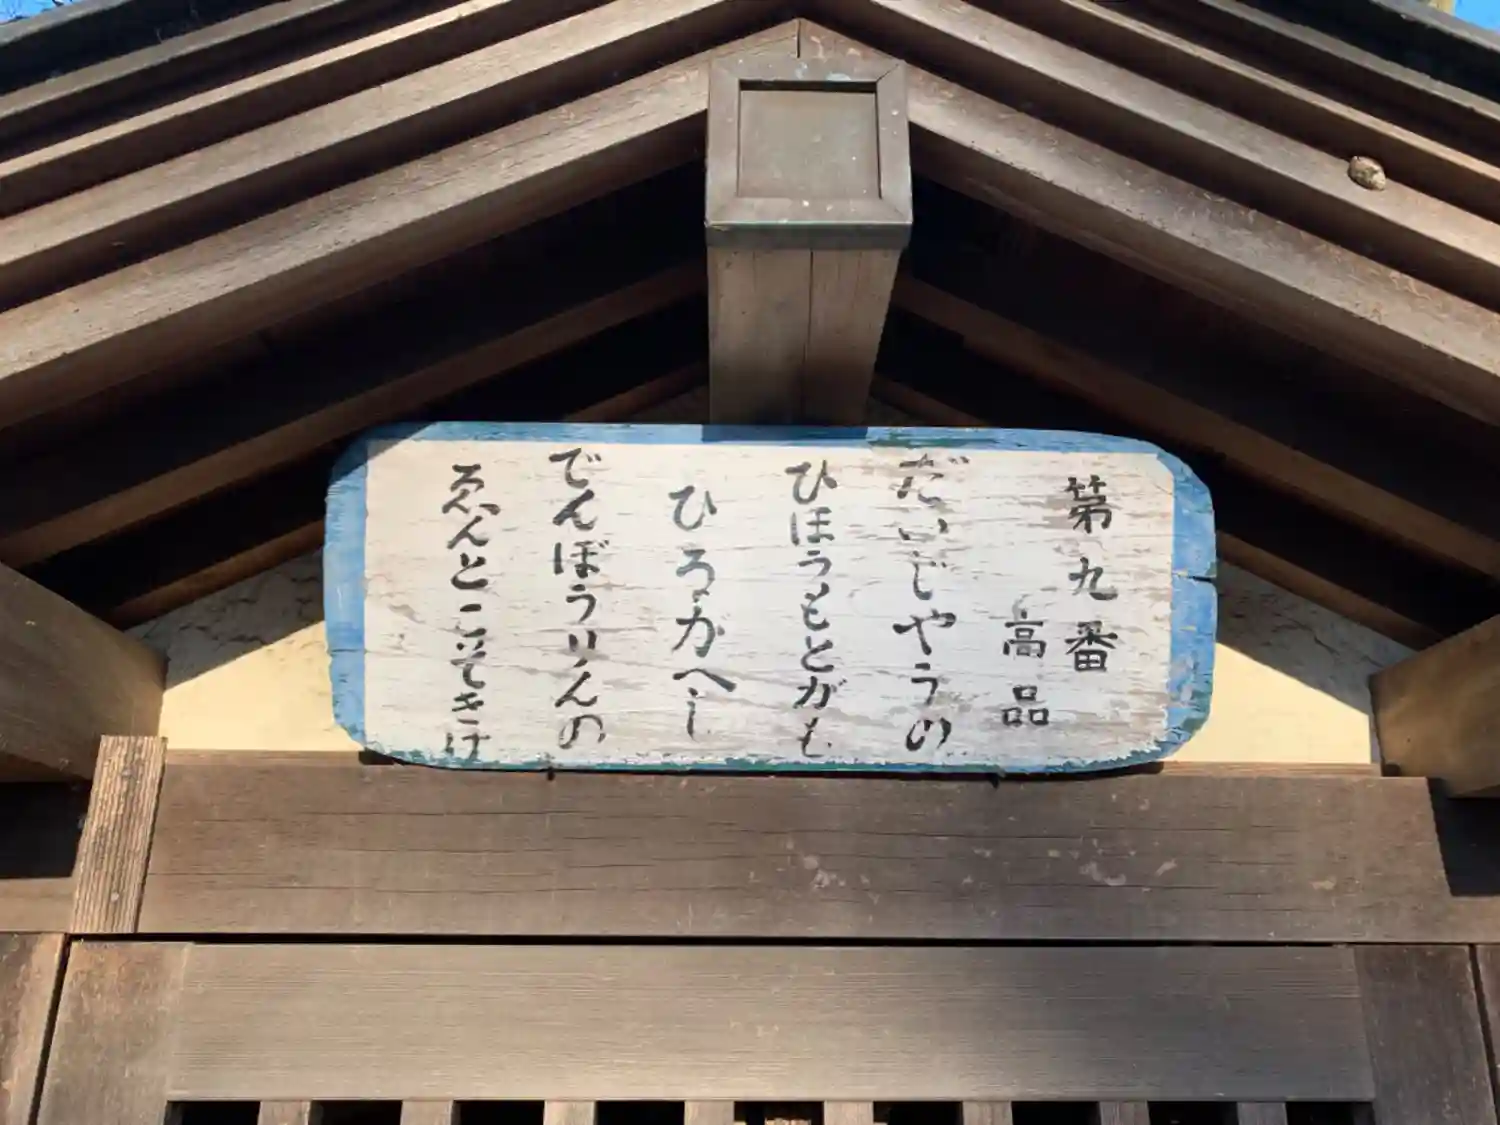 第九番
高品
だいじやうの
ひほうもとがも
ひるかへし
でんぼうりんの
ゑんとこそきけ